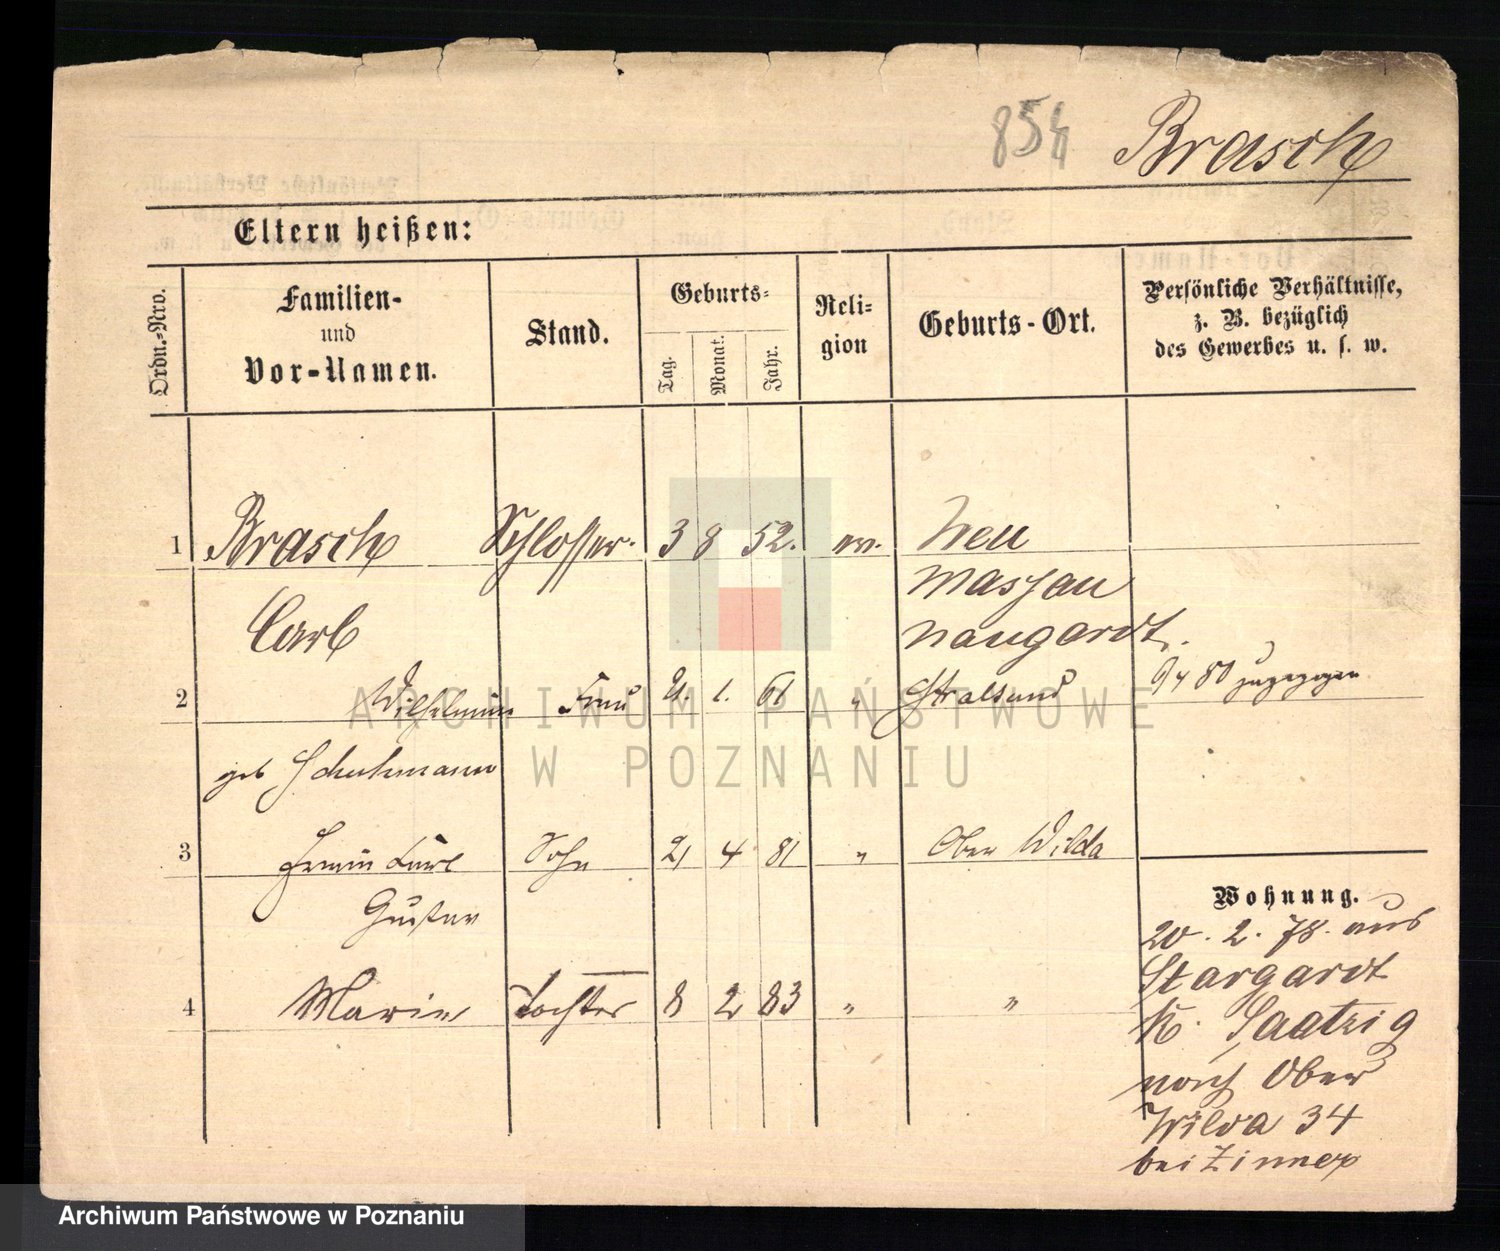 854 Brasch
Eltern heißen:
Ordn.-Nro.
Familien-
und
Vor-Namen.
Stand.
Geburts-
Tag.
Monat.
Jahr.
Reli-
gion
Geburts-Ort.
Persönliche Verhältnisse,
z. B. bezüglich
des Gewerbes u. s. w.
1 Brasch Schlosser. 3 8 52. ev. Neu
Massow
Carl Naugardt.
2 Wilhelmine Frau 21. 1. 61 " Stralsund 9/4 80 zugezogen
geb Schuhmann
3 Erwin Carl Sohn 21 4 81 " Ober Wilda
Gustav
4 Marie Tochter 8 2 83 " "
Wohnung.
20. 2. 78. aus
Stargardt
K. Saatzig
nach Ober
Wilda 34
bei Zimmer
ARCHIWUM PAŃSTWOWE
W POZNANIU
Archiwum Państwowe w Poznaniu